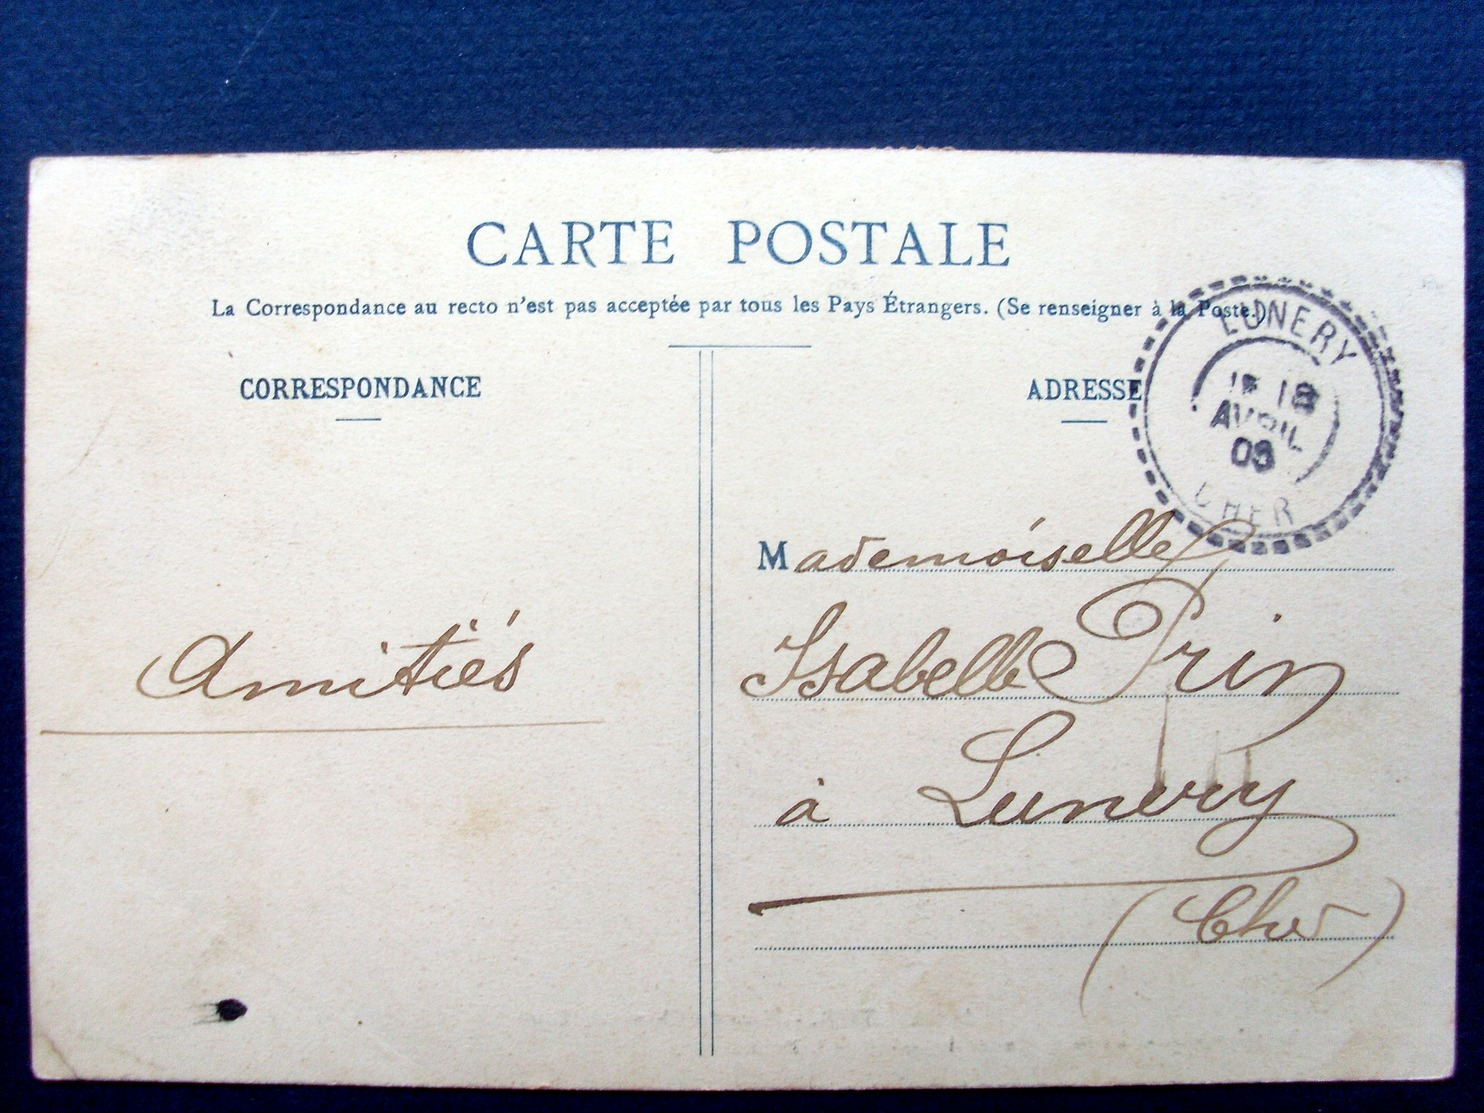 CARTE POSTALE
La Correspondance au recto n'est pas acceptée par tous les Pays Étrangers. (Se renseigner à la Poste.)
CORRESPONDANCE
ADRESSE
LUNERY
18
AVRIL
CHER
Mademoiselle
Isabelle Prin
à Lunery
(Cher)
Amitiés